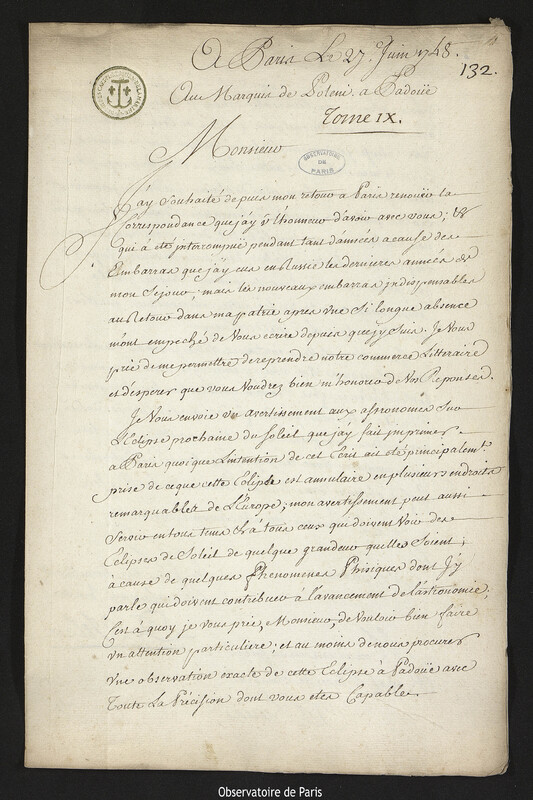 A Paris Le 27. Juin 1748.
132.
Au Marquis de Poleni. a Padoüe
Tome IX.
Monsieur
OBSERVATOIRE
DE
PARIS
J'ay souhaité depuis mon retour a Paris renouër la
Correspondance que j'ay eu l'honneur d'avoir avec vous; &
qui a eté interrompuë pendant tant d'années a cause des
Embarras que j'ay eus en Russie les dernieres années de
mon Sejour; mais les nouveaux embarras indispensables
au Retour dans ma patrie apres vne Si longue absence
m'ont empeché de Vous ecrire depuis que j'y suis. Je Vous
prie de me permettre de reprendre notre commerce Litteraire
et d'esperer que vous Voudrez bien m'honorer de Vos Reponses.
Je Vous envoie vn avertissement aux astronomes Sur
L'Eclipse prochaine du Soleil que j'ay fait imprimer
a Paris quoique L'intention de cet Ecrit ait eté principalemt.
prise de ce que cette Eclipse est annulaire en plusieurs endroits
remarquables de L'Europe; mon avertissement peut aussi
Servir en tous tems & à tous ceux qui doivent Voir des
Eclipses de Soleil de quelque grandeur quelles Soient;
à cause de quelques Phenomenes Phisiques dont J'y
parle qui doivent contribuer à l'avancement de l'astronomie.
C'est à quoy je vous prie, Monsieur, de Vouloir bien faire
vn attention particuliere; et au moins de nous procurer
vne observation exacte de cette Eclipse à Padoüe avec
Toute La Précision dont vous etes Capable.
Observatoire de Paris